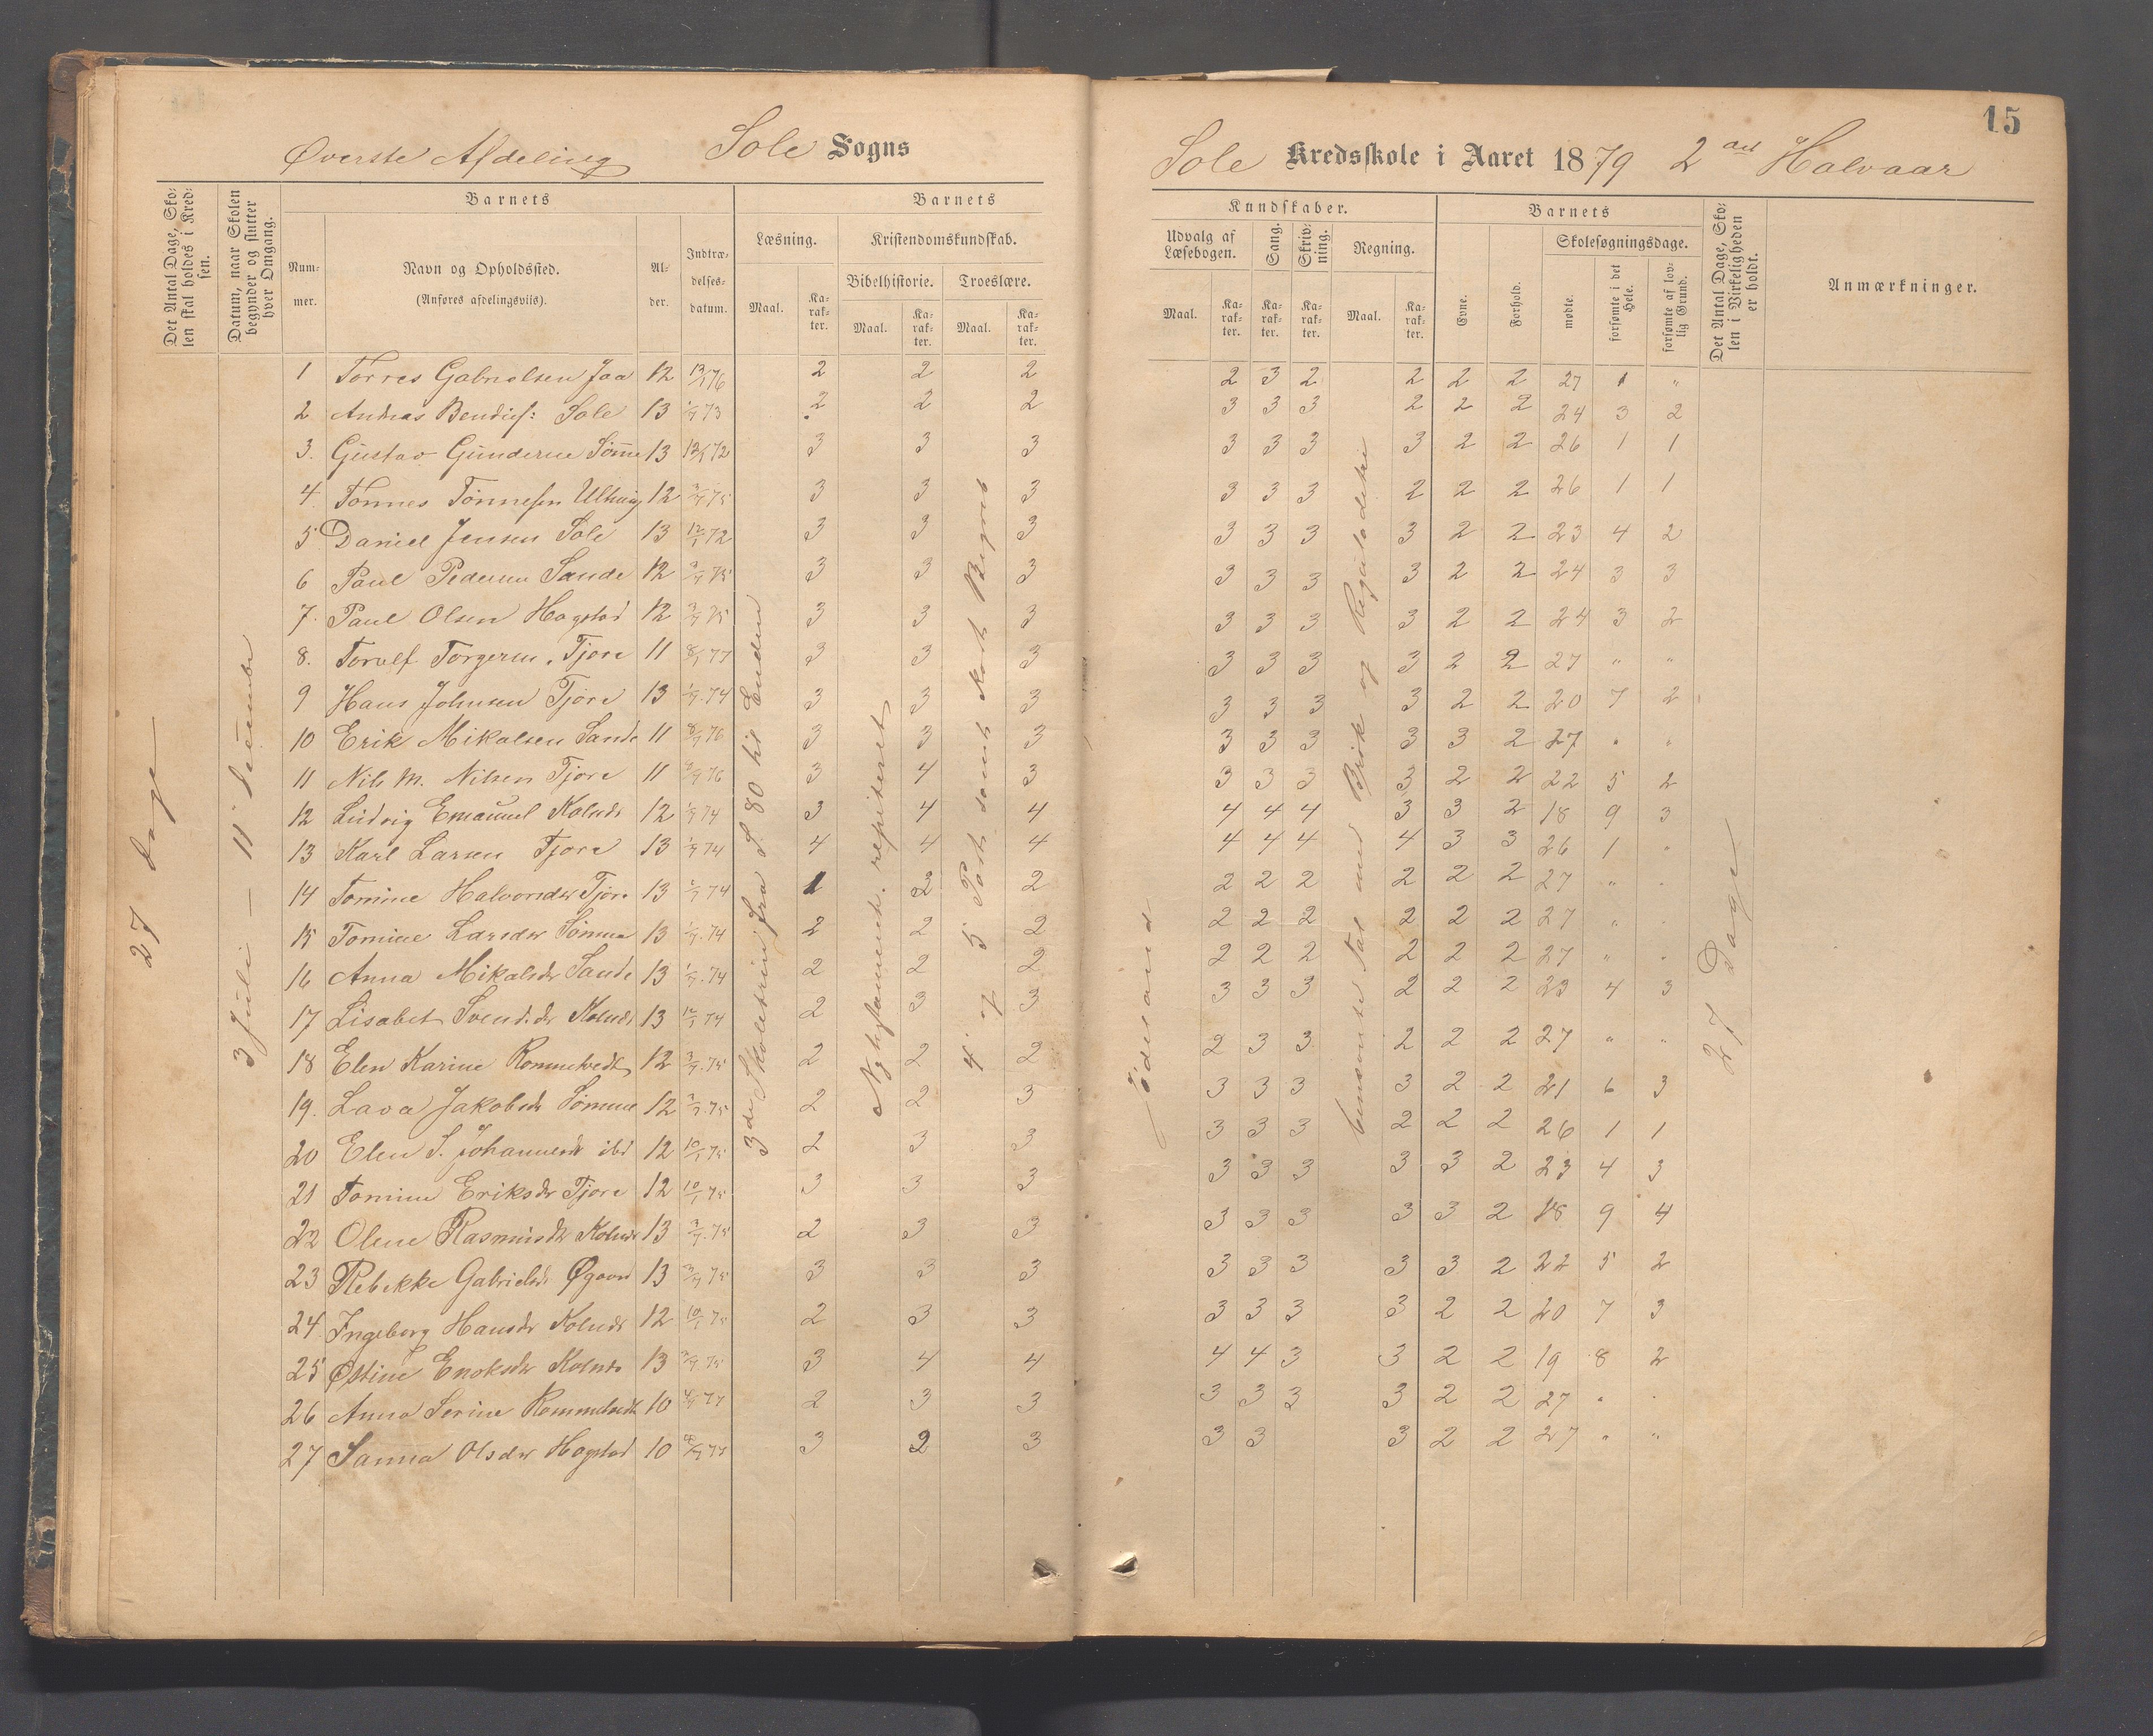 15
Øverste Afdeling Sole Sogns
Sole Kredsskole i Aaret 1879 2det Halvaar
Det Antal Dage, Skolen skal holdes i Kredsen.
Datum, naar Skolen begynder og slutter hver Omgang.
Barnets
Nummer.
Navn og Opholdssted.
(Anføres afdelingsviis).
Alder.
Indtrædelses-datum.
Barnets
Læsning.
Maal.
Karakter.
Kristendomskundskab.
Bibelhistorie.
Maal.
Karakter.
Troeslære.
Maal.
Karakter.
Kundskaber.
Udvalg af Læsebogen.
Maal.
Karakter.
Sang.
Karakter.
Skrivning.
Karakter.
Regning.
Maal.
Karakter.
Barnets
Evne.
Forhold.
Skolesøgningsdage.
mødte.
forsømte i det Hele.
forsømte af lovlig Grund.
Det Antal Dage, Skolen i Virkeligheden er holdt.
Anmærkninger.
27 Dage
3 Juli – 11 December
3de Skoletrin fra S. 80 til Enden
Ny testamente repiteret
4 og 5 Part samt kort Begreb
Jødeland
benævnte Tal med Brøk og Reguladetri
27 Dage
1 Torres Gabrielsen Jaa 12 13/1 76 2 2 2 2 3 2 2 2 2 27 1 "
2 Andreas Bendics: Sole 13 1/7 73 2 2 2 3 3 3 2 2 2 24 3 2
3. Gustav Gundersen Sømme 13 12/1 72 3 3 3 3 3 3 3 2 2 26 1 1
4. Tønnes Tønnesen 12 3/7 75 3 3 3 3 3 3 2 2 2 26 1 1
5 Daniel Jensen Sole 13 12/1 72 3 3 3 3 3 3 3 2 2 23 4 2
6 Paul Pedersen Sande 12 3/7 75 3 3 3 3 3 3 3 2 2 24 3 3
7. Paul Olsen Hogstad 12 3/7 75 3 3 3 3 3 3 3 2 2 24 3 2
8. Torulf Torgersen. Tjore 11 8/1 77 3 3 3 3 3 3 3 2 2 27 " "
9 Hans Johnsen Tjore 13 1/7. 74 3 3 3 3 3 3 3 2 2 20 7 2
10 Erik Mikalsen Sande 11 8/7 76 3 3 3 3 3 3 3 3 2 27 " "
11 Nils M. Nilsen Tjore 11 3/7 76 3 4 3 3 3 3 3 2 2 22 5 2
12 Ludvig Emanuel Kolnes 12 1/7 74 3 4 4 4 4 4 3 3 2 18 9 3
13 Karl Larsen Tjore 13 1/7 74 4 4 4 4 4 4 4 3 3 26 1 "
14 Tomine Halvorsdr Tjore 13 1/7 74 1 2 2 2 2 2 2 2 2 27 " "
15 Tomine Larsdr Sømme 13 1/7. 74 2 2 2 2 2 2 2 2 2 27 " "
16 Anna Mikalsdr Sande 13 1/7. 74 2 2 2 2 2 2 2 2 2 27 " "
17 Lisabet Svendsdr Kolnes 13 12/1 74 2 3 3 3 3 3 2 2 2 23 4 3
18 Elen Karine Rommetvedt 12 3/7. 75 2 2 2 2 3 3 2 2 2 27 " "
19. Lava Jakobsdr Sømme 12 3/7. 75 2 2 3 3 3 3 3 2 2 21 6 3
20 Elen S. Johannesdr ibd 12 10/1 75 2 3 3 3 3 3 2 2 2 26 1 1
21 Tomine Eriksdr Tjore 12 10/1 75 3 3 3 3 3 3 3 3 2 23 4 3
22 Olene Rasmusdr Kolnes 13 3/7. 75 2 3 3 3 3 3 3 3 2 18 9 4
23 Rebekke Gabrielsdr Øgaard 13 3/7 75 3 3 3 3 3 3 3 3 2 22 5 2
24. Ingeborg Hansdr Kolnes 12 10/1 75 2 3 3 3 3 3 3 2 2 20 7 3
25 Østine Enoksdr Kolnes 13 3/7 75 3 4 4 4 4 3 3 2 2 19 8 2
26 Anna Serine Rommetvedt 10 4/7 77 2 3 3 3 3 3 3 2 2 27 " "
27 Sanna Olsdr Hogstad 10 77 3 2 3 3 3 3 2 2 27 " "